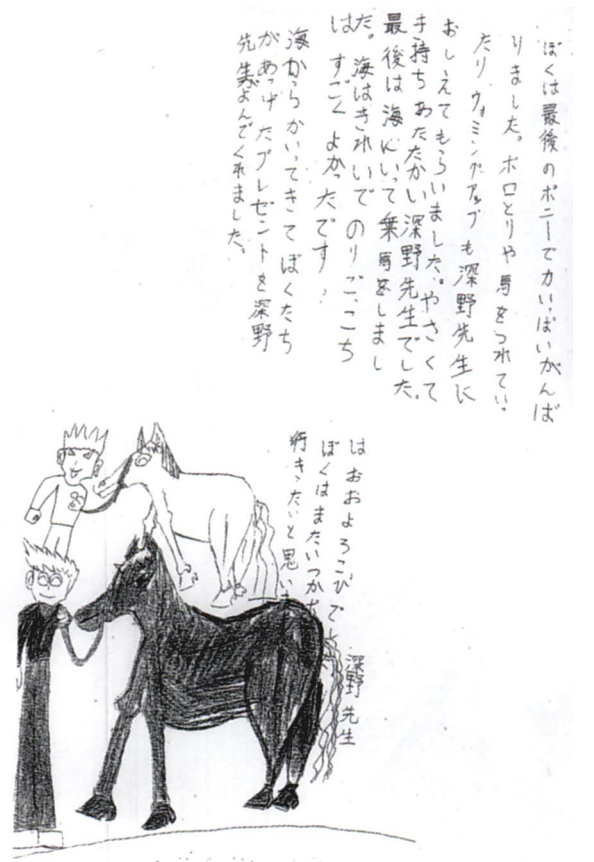 ぼくは最後のポニーで力いっぱいがんば
りました。ボロとりや馬をつれてい
たり ウォミングアップも深野先生に
おしえてもらいました。やさくて
手持ちあたたかい深野先生でした。
最後は海にいって乗馬をしまし
た。海はきれいでのりごこち
は すごくよかったです。
海からかいってきてぼくたち
があっげたプレゼントを深野
先生よんでくれました。
はおおよろこびでし
ぼくはまたいつか
行きったいと思い
深野先生